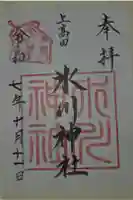 奉拝
上高田
氷川神社
氷川神社
令和
七年十月十一日